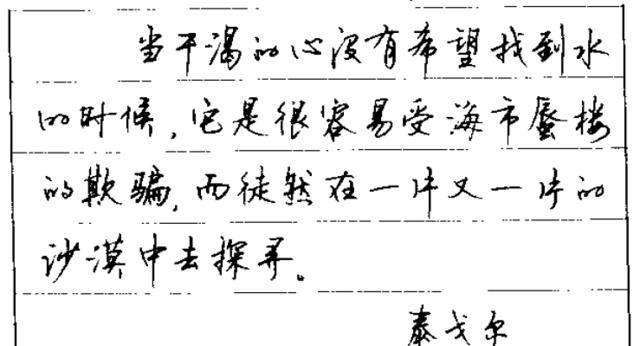 当干渴的心没有希望找到水
的时候，它是很容易受海市蜃楼
的欺骗，而徒然在一片又一片的
沙漠中去探寻。
泰戈尔